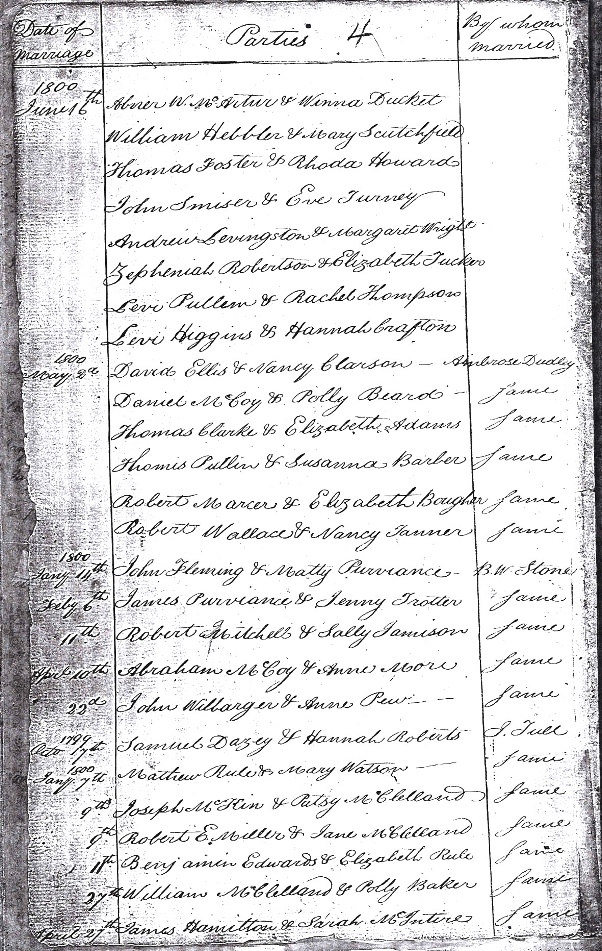 Date of Marriage Parties 4 By whom married
1800
June 16th Abner W. McArtur & Winna Ducket
William Hebbler & Mary Scutchfield
Thomas Foster & Rhoda Howard
John Smiser & Eve Turney
Andrew Levingston & Margaret Wright
Zepheniah Robertson & Elizabeth Tucker
Levi Pullem & Rachel Thompson
Levi Higgins & Hannah Crafton
1800
May 2d David Ellis & Nancy Clarson — Ambrose Dudley
Daniel McCoy & Polly Beard — Same
Thomas Clarke & Elizabeth Adams Same
Thomis Pullin & Susanna Barber Same
Robert Marcer & Elizabeth Bougher Same
Robert Wallace & Nancy Tanner Same
1800
Jany 14th John Fleming & Matty Purviance — B. W. Stone
Feby 6th James Purviance & Jenny Trotter Same
11th Robert Mitchell & Sally Jamison Same
April 10th Abraham McCoy & Anne More Same
22d John Wilbarger & Anne Pew — Same
1799
Octr 7th Samuel Dazey & Hannah Roberts J. Tull
1800
Jany 7th Mathew Rule & Mary Watson — Same
9th Joseph McKin & Patsy McClelland Same
9th Robert E. Miller & Jane McClelland Same
11th Benjamin Edwards & Elizabeth Rule Same
27th William McClelland & Polly Baker Same
April 27th James Hamilton & Sarah McIntire Same